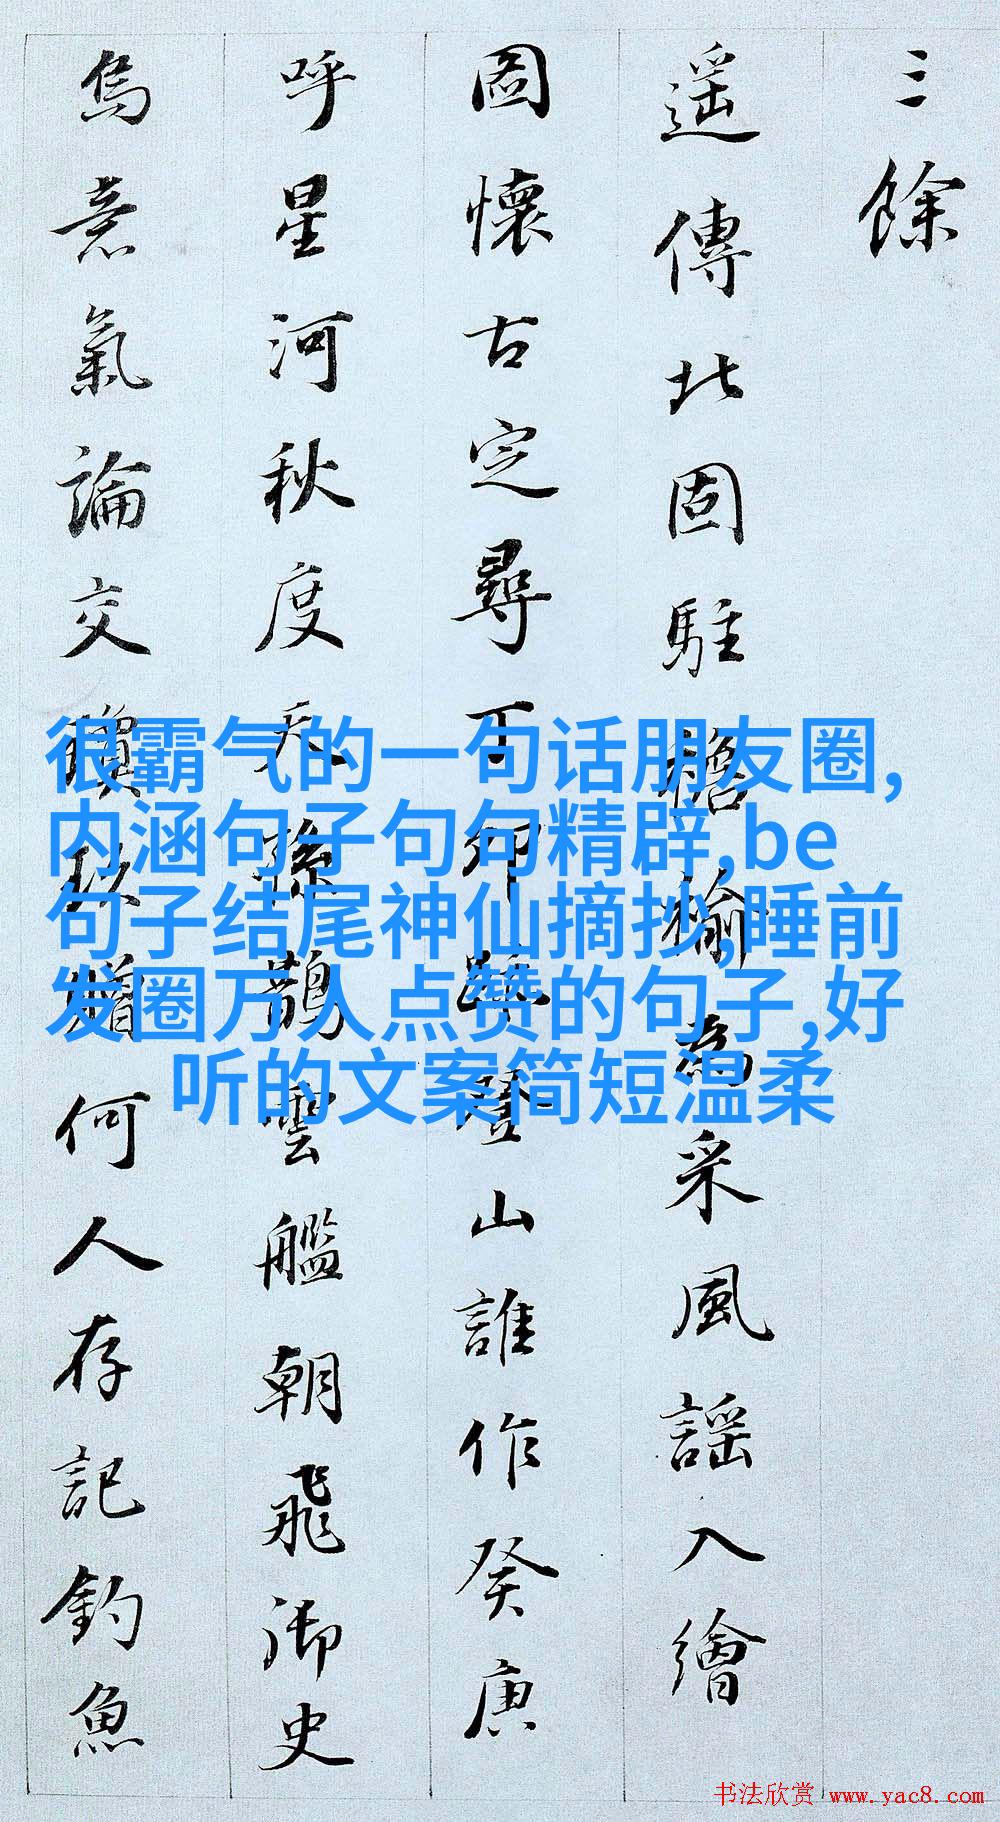 三餘
遥傳北固駐為采風謡入繪
圖懷古定尋丁卯登山誰作癸庚
呼星河秋度天孫鵲雲艦朝飛御史
烏意氣論交瓊玖贈何人存記釣魚
很霸气的一句话朋友圈,
内涵句子句句精辟,be
句子结尾神仙摘抄,睡前
发圈万人点赞的句子,好
听的文案简短温柔
书法欣赏 www.yac8.com